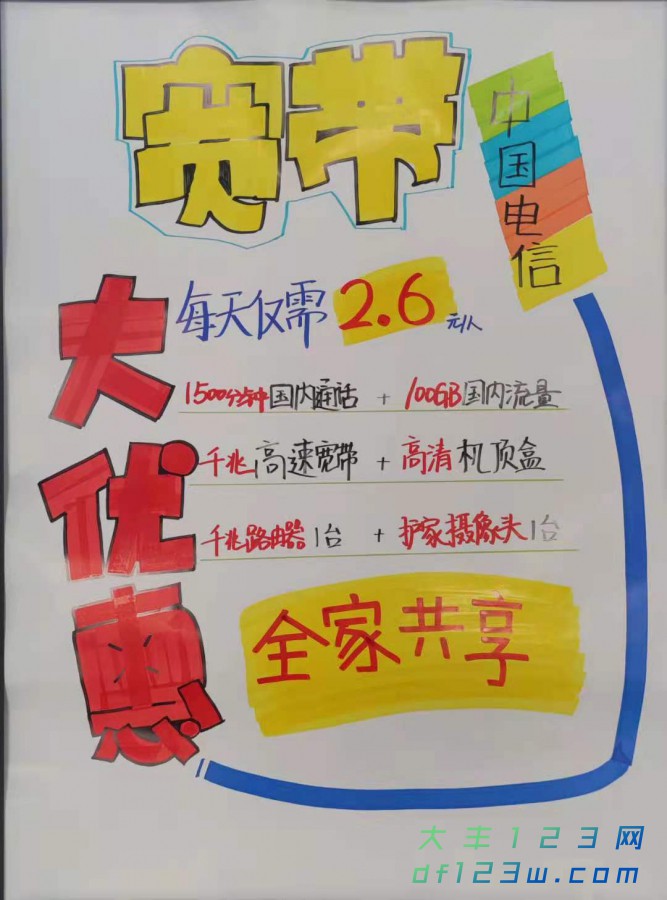 宽带
中国电信
大优惠
每天仅需 2.6 元/人
1500分钟国内通话 + 100GB国内流量
千兆高速宽带 + 高清机顶盒
千兆路由器1台 + 护家摄像头1台
全家共享
大丰123网
df123w.com